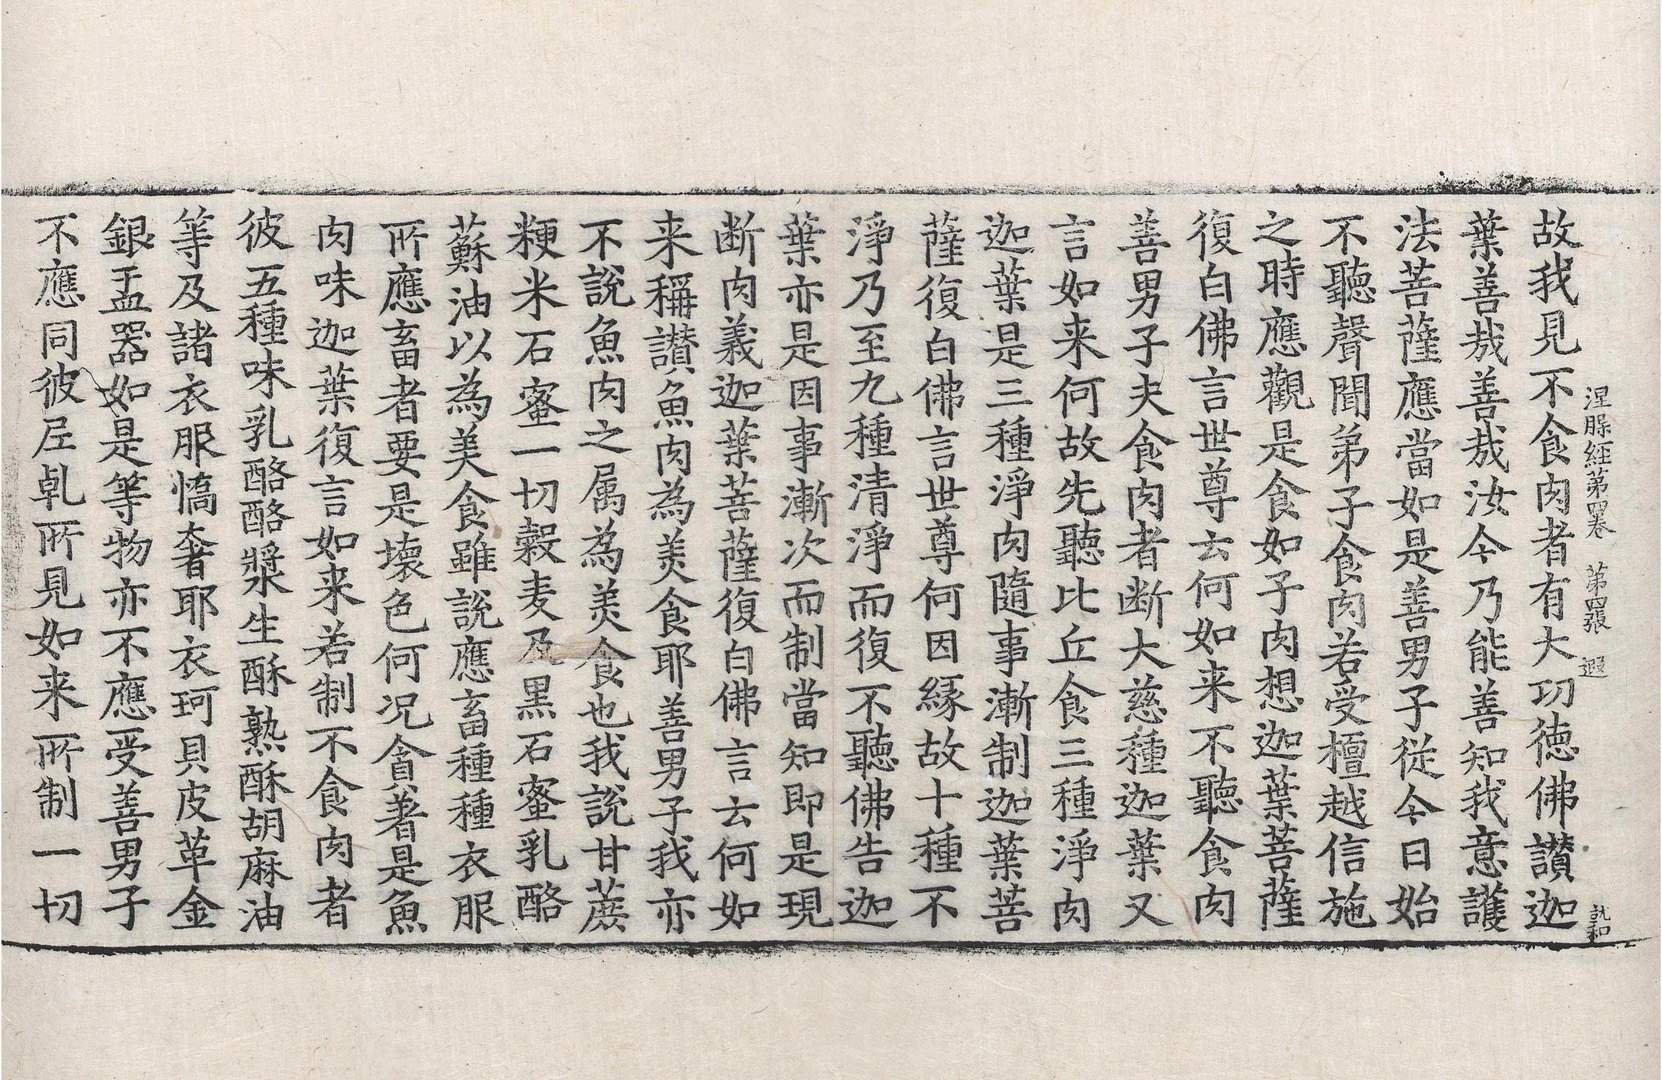 涅槃經第四卷　第四張　遐　就和
故我見不食肉者有大功德佛讃迦
葉善㢤善㢤汝今乃能善知我意護
法菩薩應當如是善男子從今日始
不聽聲聞弟子食肉若受檀越信施
之時應觀是食如子肉想迦葉菩薩
復白佛言世尊云何如来不聽食肉
善男子夫食肉者断大慈種迦葉又
言如来何故先聽比丘食三種淨肉
迦葉是三種淨肉隨事漸制迦葉菩
薩復白佛言世尊何因縁故十種不
淨乃至九種清淨而復不聽佛告迦
葉亦是因事漸次而制當知即是現
断肉義迦葉菩薩復白佛言云何如
来稱讃魚肉為美食耶善男子我亦
不說魚肉之属為美食也我說甘蔗
粳米石蜜一切穀麦及黒石蜜乳酪
蘇油以為美食雖說應畜種種衣服
所應畜者要是壊色何况貪著是魚
肉味迦葉復言如来若制不食肉者
彼五種味乳酪酪漿生酥熟酥胡麻油
等及諸衣服憍奢耶衣珂貝皮革金
銀盂器如是等物亦不應受善男子
不應同彼尼乹所見如来所制一切